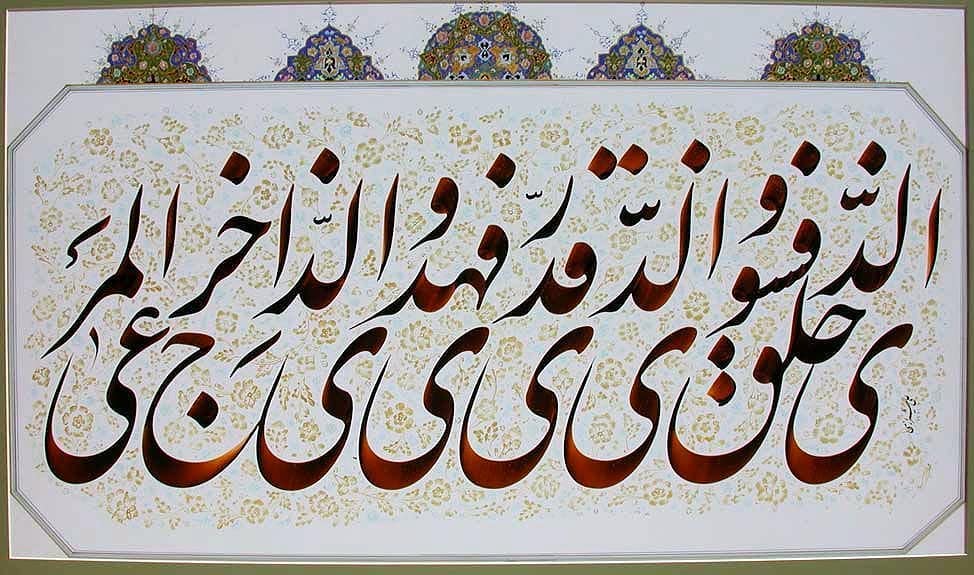 الذی خلق فسوی والذی قدر فهدی والذی اخرج المرعی